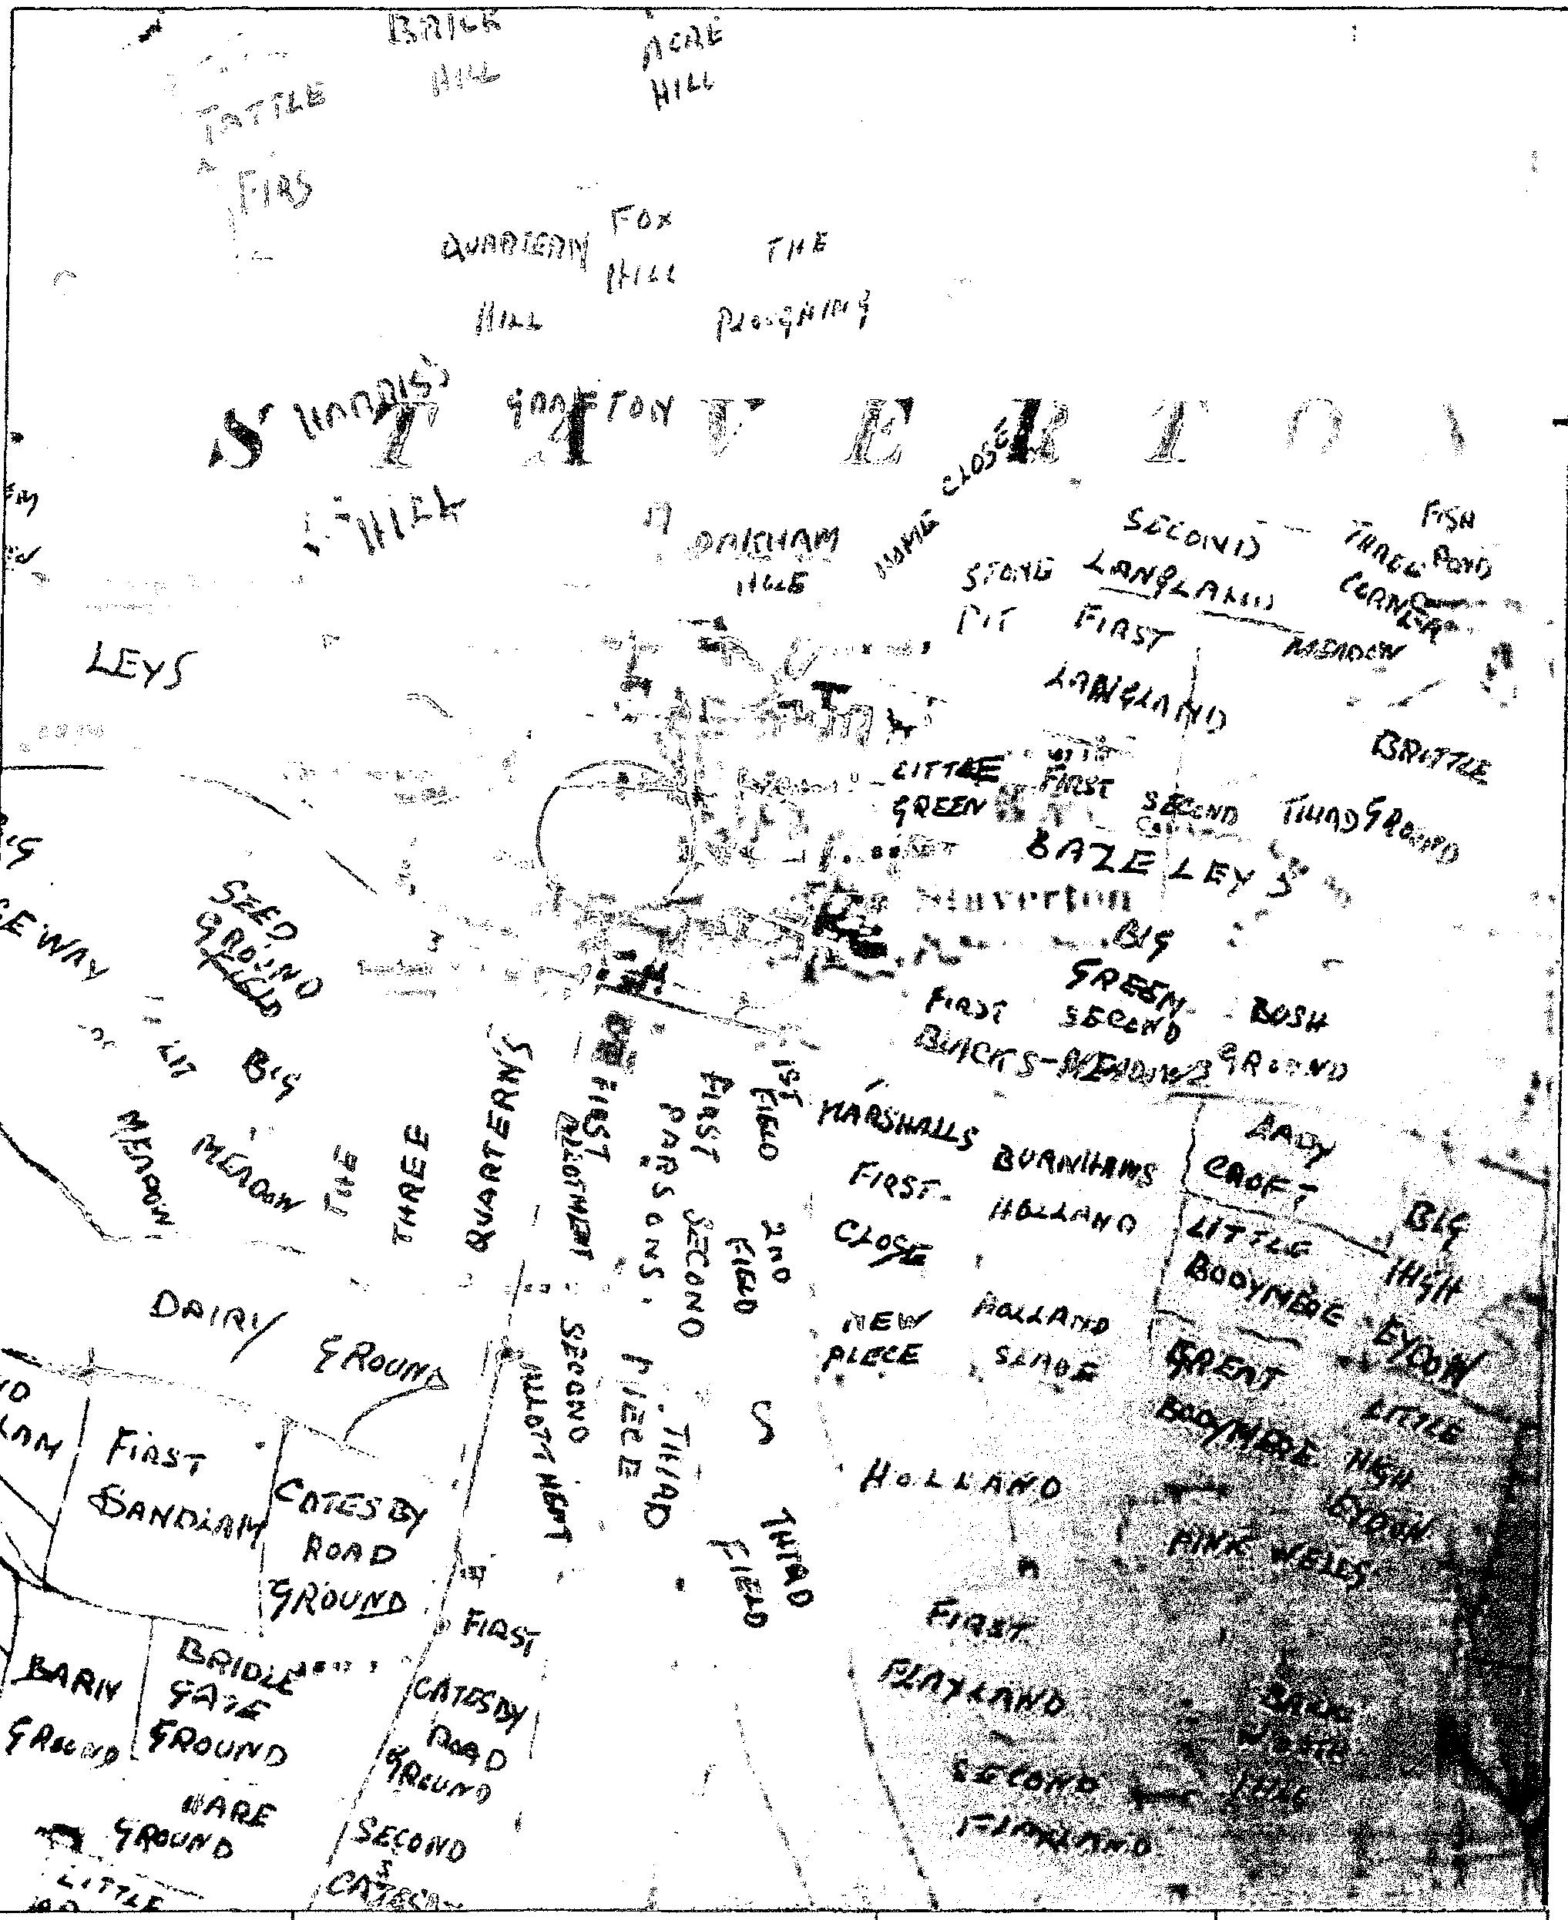 BRICK
HILL
ACRE
HILL
TATTLE
FIRS
QUARTERN
HILL
FOX
HILL
THE
PLOUGHING
HARRIS'S
HILL
GRAFTON
STAVERTON
OAKHAM
HOLE
HOME CLOSE
STONE
PIT
SECOND
LANGLAND
THREE
CORNER
FISH
POND
MEADOW
FIRST
LANGLAND
BRITTLE
LEYS
LITTLE
GREEN
FIRST
SECOND
THIRD
GROUND
BAZELEYS
Staverton
SEED
GROUND
FIELD
BIG
GREEN
FIRST
SECOND
BUSH
GROUND
LIT
MEADOW
BIG
MEADOW
THE
THREE
QUARTERNS
FIRST
ALLOTMENT
FIRST
PARSONS
SECOND
PIECE
THIRD
1ST
FIELD
2ND
FIELD
THIRD
FIELD
SECOND
ALLOTTMENT
MARSHALLS
FIRST
CLOSE
BURNHAMS
HOLLAND
CROFT
BIG
HIGH
EYDON
LITTLE
BODYMERE
NEW
PIECE
HOLLAND
SLADE
GREAT
BODYMERE
LITTLE
HIGH
EYDON
DAIRY
GROUND
S
HOLLAND
PINK WELLS
FIRST
SANDLAM
CATESBY
ROAD
GROUND
FIRST
CATESBY
ROAD
GROUND
BARN
GROUND
BRIDLE
GATE
GROUND
FIRST
FLAXLAND
HILL
SECOND
FLAXLAND
HARE
GROUND
SECOND
LITTLE